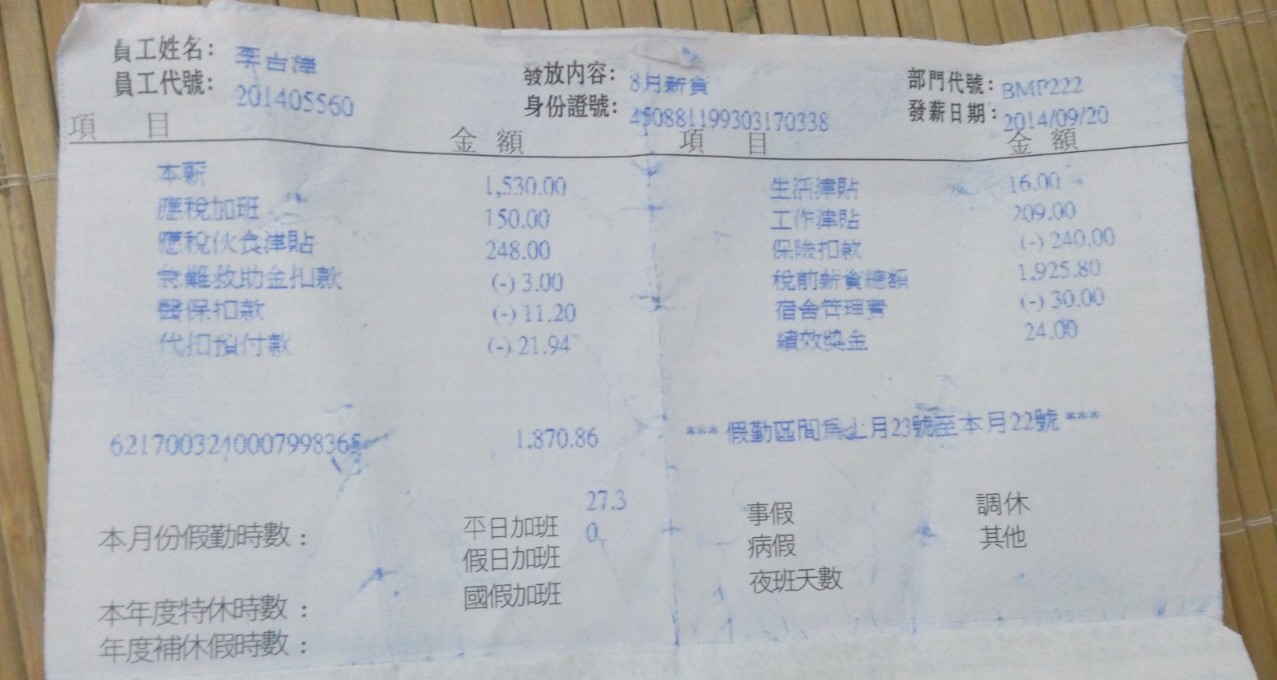 員工姓名： 李吉澤 發放內容： 8月薪資 部門代號： BMP222
員工代號： 201405560 身份證號： 450881199303170338 發薪日期： 2014/09/20
項 目 金 額 項 目 金 額
本薪 1,530.00 生活津貼 16.00
應稅加班 150.00 工作津貼 209.00
應稅伙食津貼 248.00 保險扣款 (-) 240.00
急難救助金扣款 (-) 3.00 稅前薪資總額 1,925.80
醫保扣款 (-) 11.20 宿舍管理費 (-) 30.00
代扣預付款 (-) 21.94 績效獎金 24.00
6217003240007998365 1,870.86 *** 假勤區間為上月23號至本月22號 ***
本月份假勤時數： 平日加班 27.3 事假 調休
假日加班 0 病假 其他
國假加班 夜班天數
本年度特休時數：
年度補休假時數：